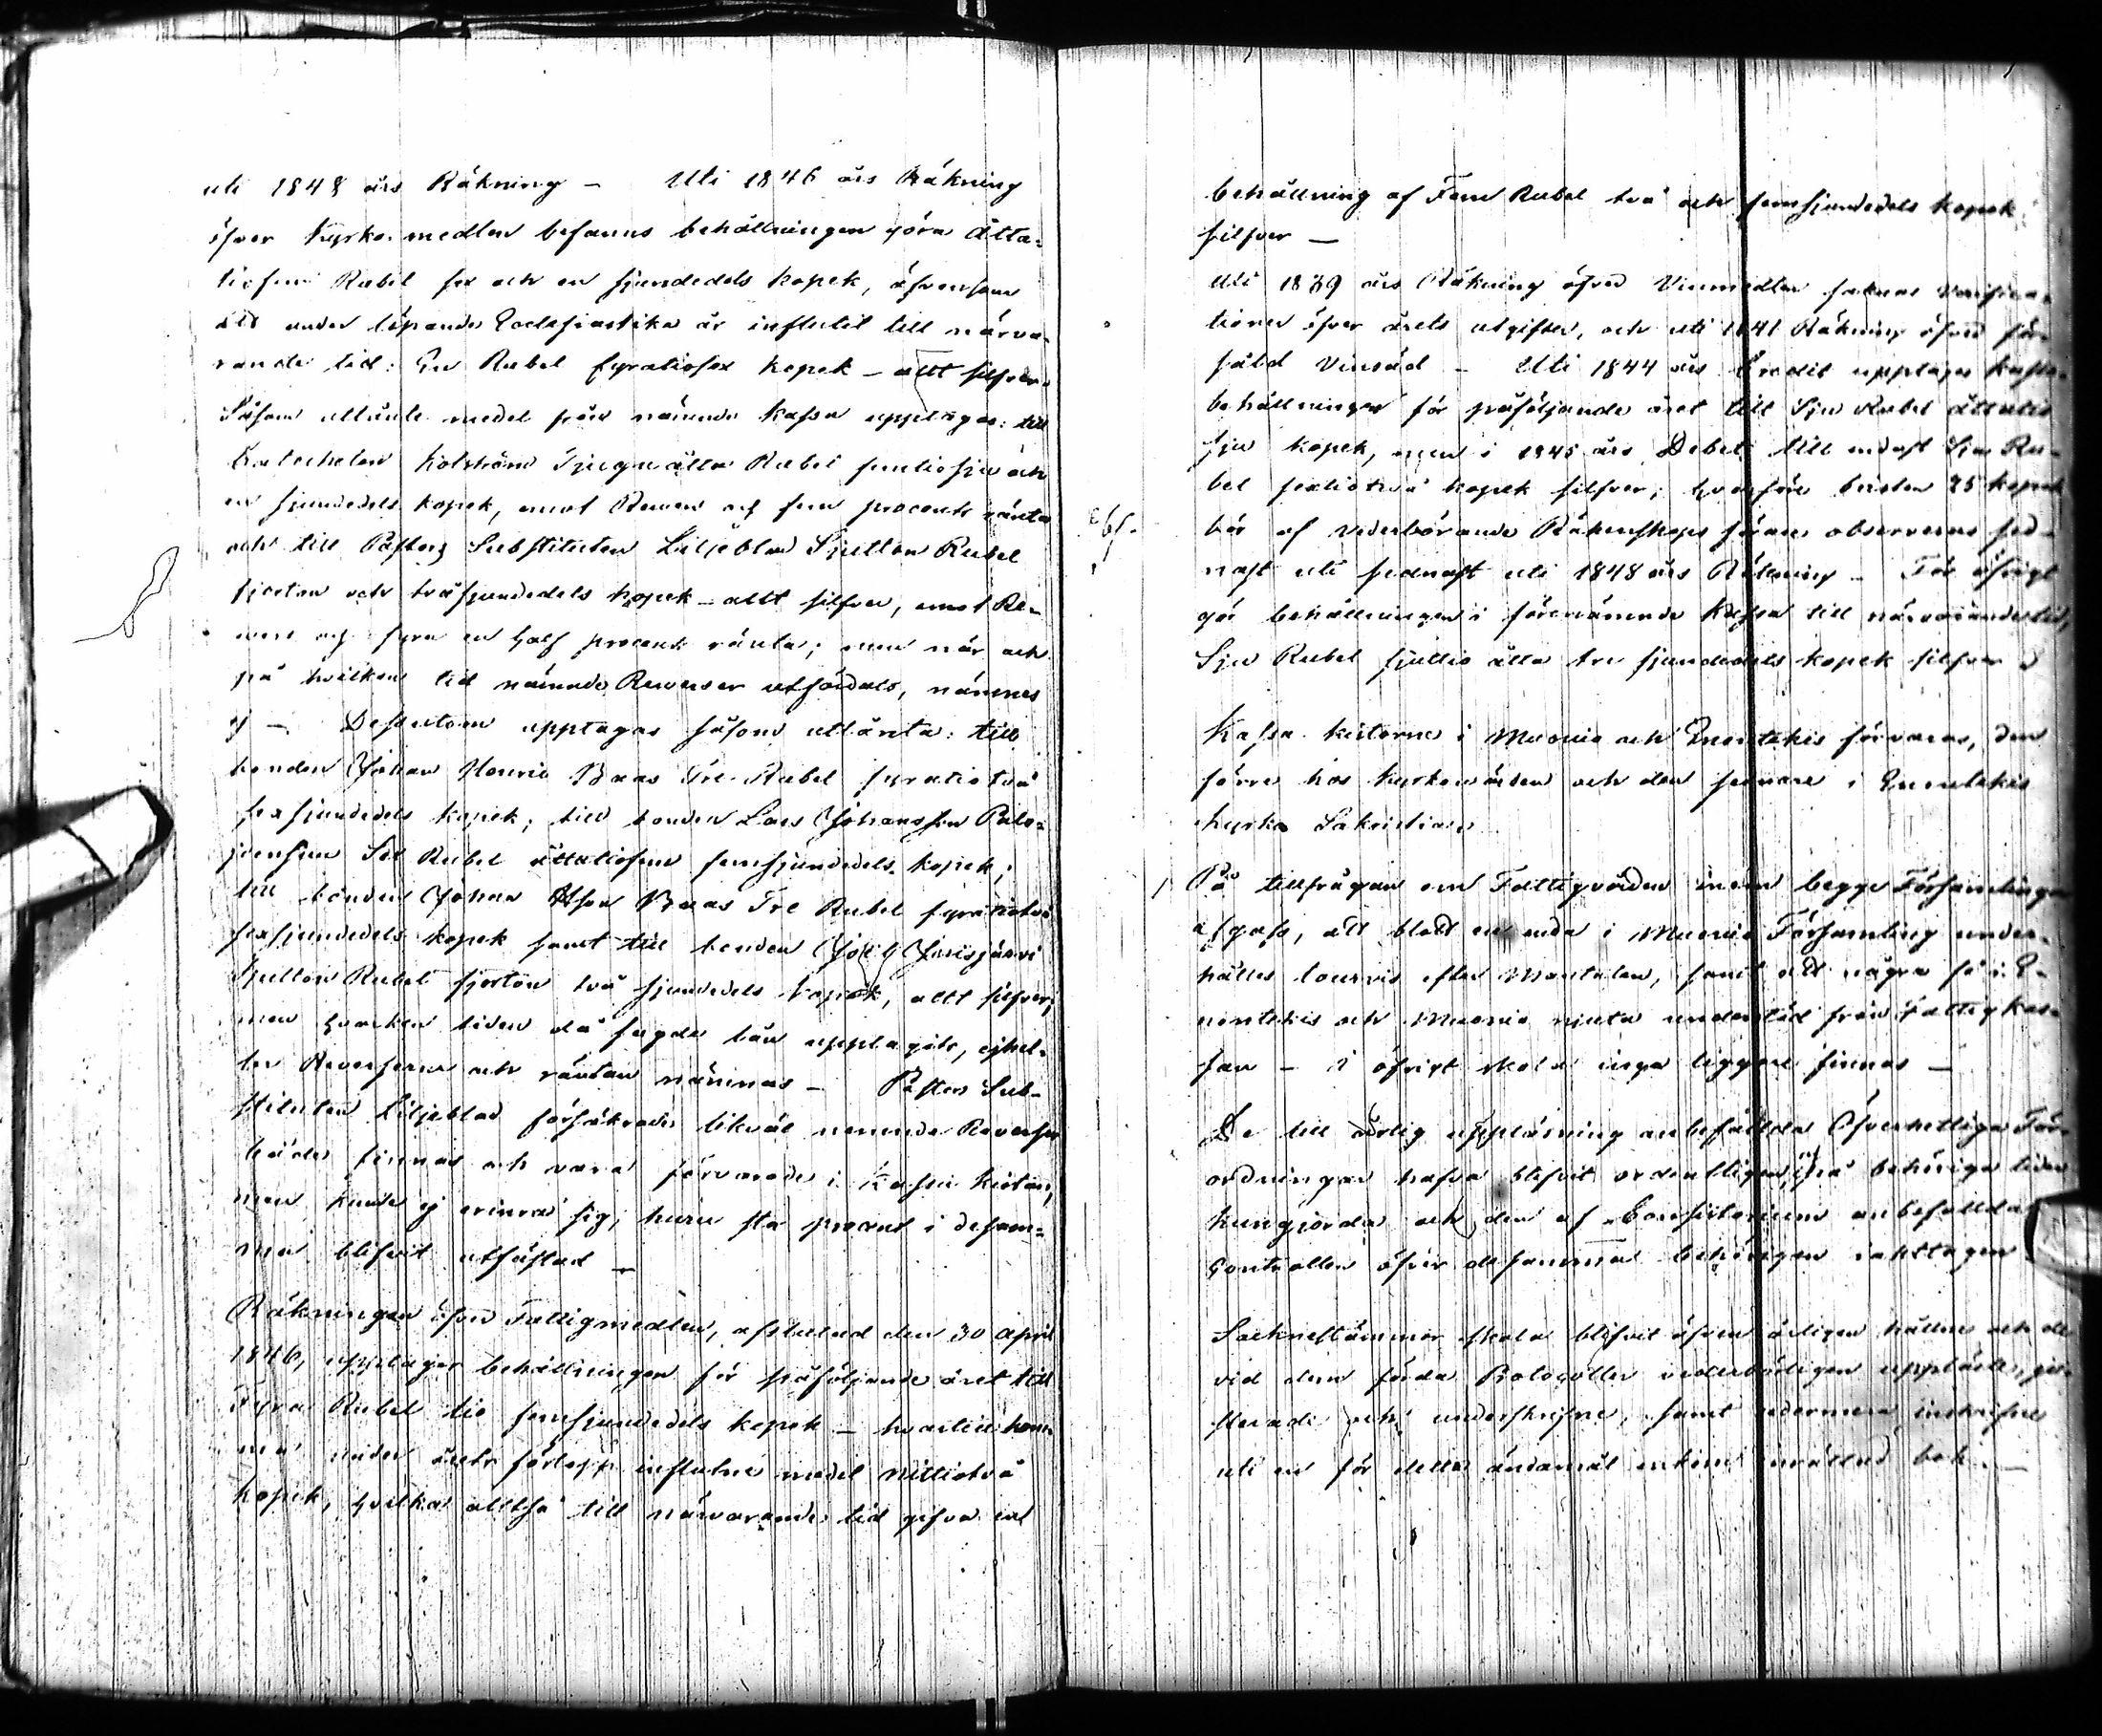 uti 1848 års Räkning — Uti 1846 års Räkning
öfver Kyrko medlen befanns behållningen göra Åtta-
tiofem Rubel sex och en sjundedels kopek, äfvensom
att under löpande Ecclesiastika år influtit till närva-
rande tid: En Rubel fyratiosex kopek — allt silfver.
Såsom utlånte medel från nämnde kassa upptages: till
Katecheten Kolström Tjuguåtta Rubel femtiosju och
en sjundedels kopek, emot Revers och fem procents ränta
och till Pastors Substituten Liljeblad Sjutton Rubel
fjorton och tvåsjundedels kopek — allt silfver, emot Re-
vers och fyra en half procent ränta; men när och
på hvilken tid nämnde Reverser utfärdats, nämnes
ej — Dessutom upptagas såsom utlånta: till
bonden Johan Henric Vaas Tre Rubel fyratiotvå
sexsjundedels kopek; till bonden Lars Johansson Palo-
joensuu Sex Rubel åttatiofem femsjundedels kopek;
till bonden Johan Vaas Tre Rubel fyratiotvå
sexsjundedels kopek samt till bonden
Sjutton Rubel fjorton två sjundedels kopek, allt silfver;
men hvarken tiden då sagde lån upptagits, ejhel-
ler Reverserna och räntan nämnas — Pastors Sub-
stituten Liljeblad försäkrade likväl nämnde Reverser
både finnas och vara förvarade i Kassa kistan,
men kunde ej erinra sig, huru stor procent i desam-
ma blifvit utfästad —
Räkningen öfver Fattigmedlen, afslutad den 30 April
1846, upptager behållningen för påföljande året till
Fyra Rubel tio femsjundedels kopek — hvartill kom-
ma under årets förlopp influtne medel nittiotvå
kopek, hvilka alltså till närvarande tid gifva en
behållning af Fem Rubel två och femsjundedels kopek
silfver —
Uti 1839 års Räkning öfver Vinmedlen saknas Verifica-
tioner öfver årets utgifter, och uti 1841 Räkning öfver för-
såld Vinsäd — Uti 1844 års Credit upptages kassa-
behållningen för påföljande året till Sju Rubel åttatio
sju kopek, men i 1845 års Debet till endast Sju Ru-
bel sextiotvå kopek silfver; hvarföre bristen 25 kopek
bör af vederbörande Räkenskaps förare observeras sed-
nast uti sednast uti 1848 års Räkning — För öfrigt
gör behållningen i förenämnde Kassa till närvarande tid,
Sju Rubel sjuttio åtta tre sjundedels kopek silfver
Kassa kistorne i Muonio och Enontekis förvaras, den
förre hos kyrkovärden och den sednare i Enontekis
kyrka Sakristian
På tillfrågan om Fattigvården inom begge Församlingar
afgafs, att blott en enda i Muonio Församling under-
hålles tourvis efter Mantalen, samt att några få i E-
nontekis och Muonio njuta understöd från Fattigkas-
san — I öfrigt skola inga tiggare finnas —
De till årlig uppläsning anbefallda Öfverhetliga För-
ordningar hafva blifvit ordentligen på behöriga tider
kungjorda och den af Consistorium anbefallda
Controllen öfver desamma behörigen iakttagen
Sockneftämmor skola blifvit äfven årligen hållne och de
vid dem förda Protocoller vederbörligen uppläste, ju-
sterade och underskrifne, samt
uti en för detta ändamål enkom inrättad bok. —